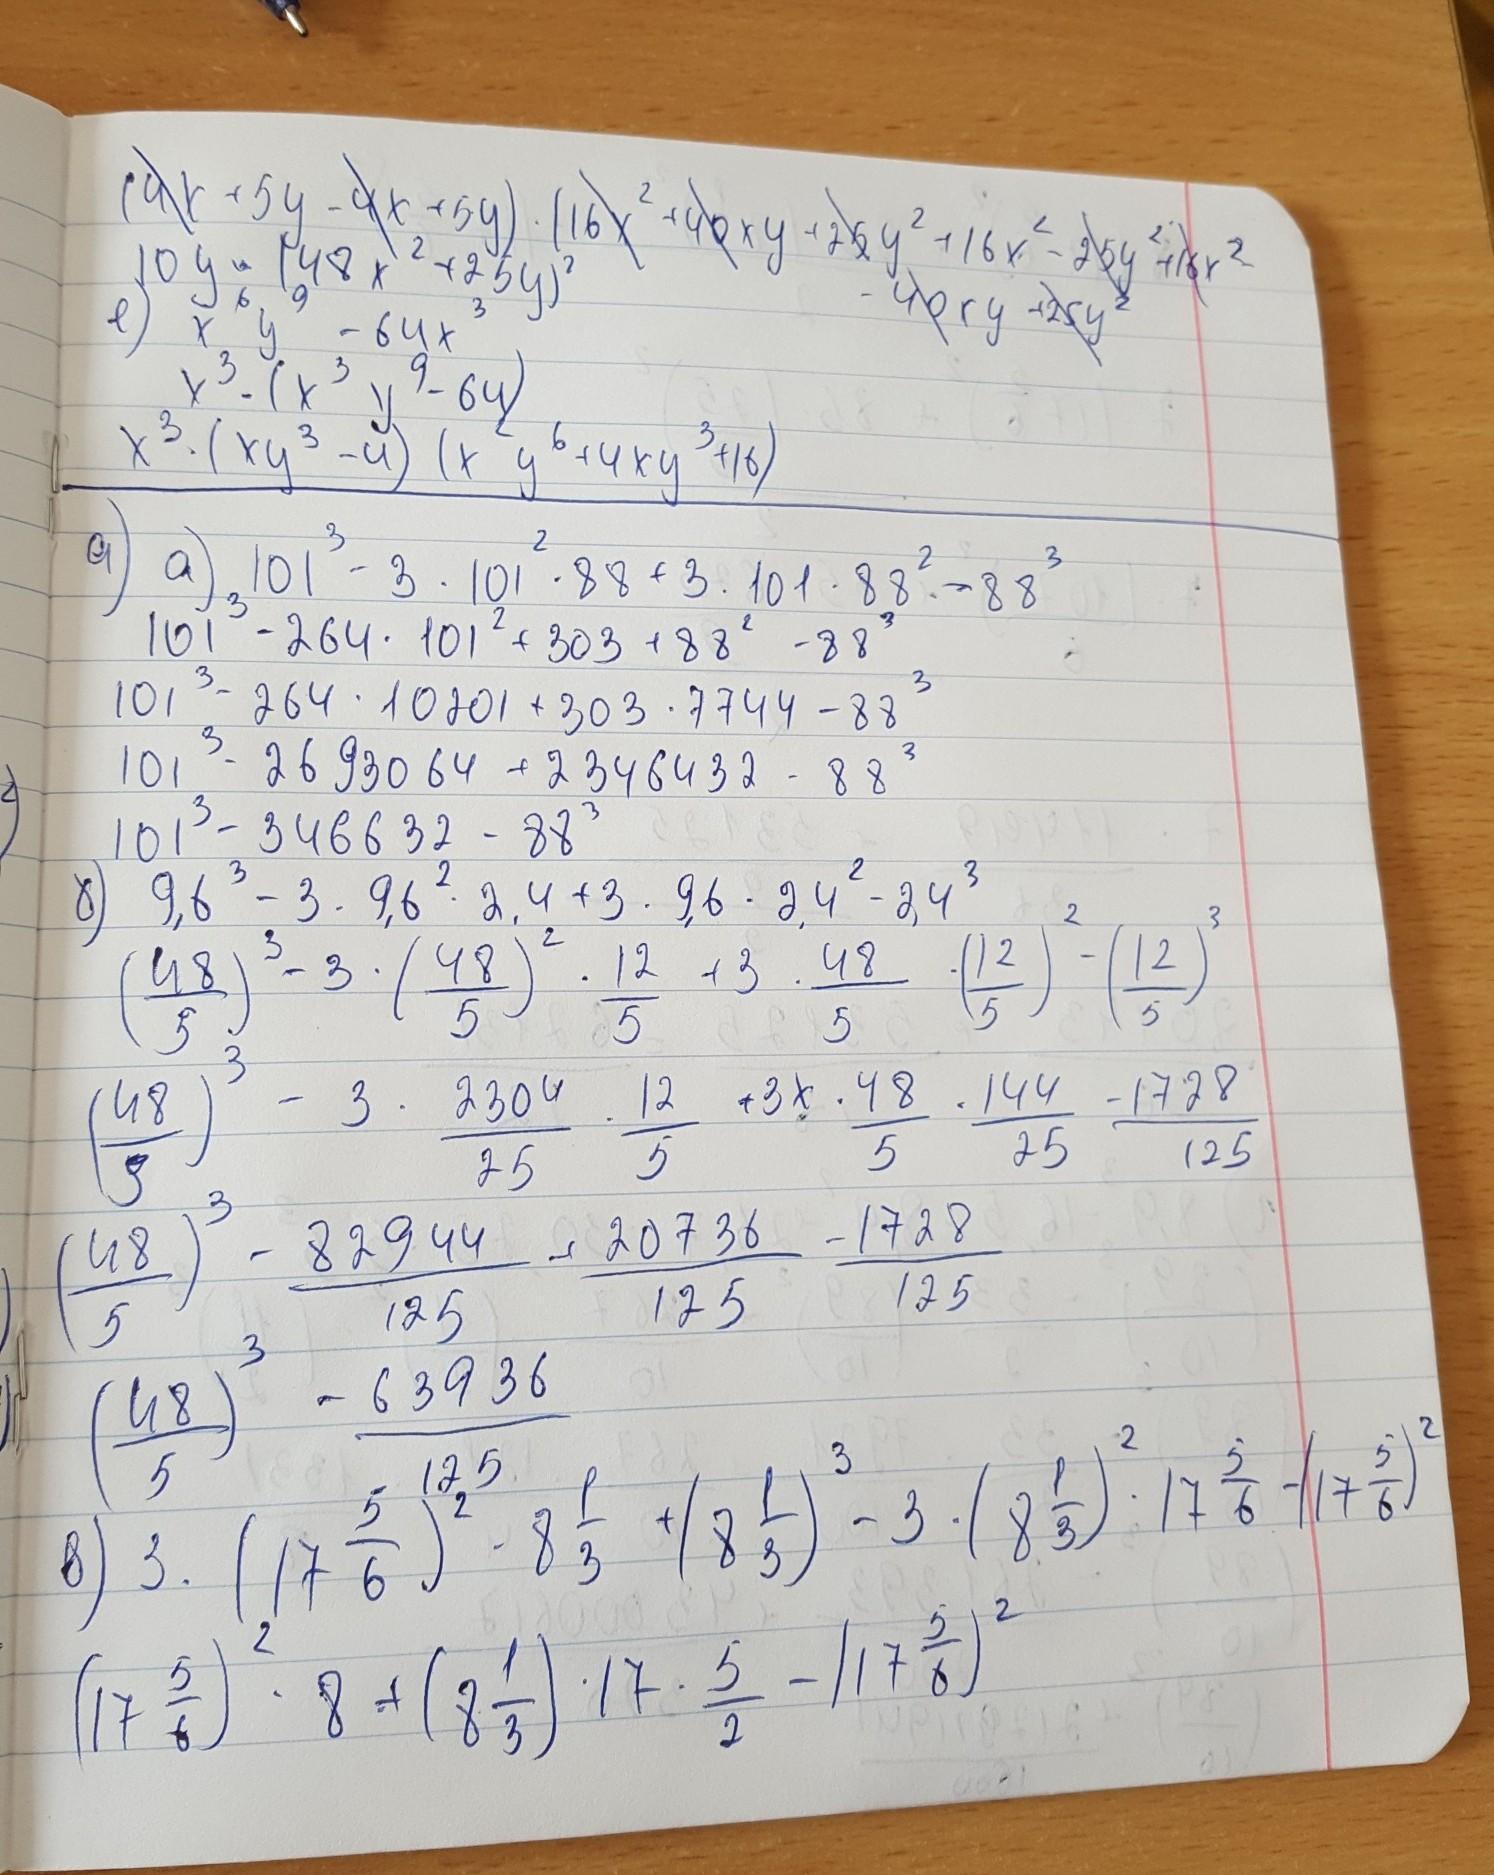 (4x + 5y - 4x + 5y) · (16x² + 40xy + 25y² + 16x² - 25y² + 16x²
- 40xy + 25y²
10y · (48x² + 25y)²
е) x⁶y⁹ - 64x³
x³ · (x³y⁹ - 64)
x³ · (xy³ - 4) (x²y⁶ + 4xy³ + 16)
а) 101³ - 3 · 101² · 88 + 3 · 101 · 88² - 88³
101³ - 264 · 101² + 303 + 88² - 88³
101³ - 264 · 10201 + 303 · 7744 - 88³
101³ - 2693064 + 2346432 - 88³
101³ - 346632 - 88³
б) 9,6³ - 3 · 9,6² · 2,4 + 3 · 9,6 · 2,4² - 2,4³
(48/5)³ - 3 · (48/5)² · 12/5 + 3 · 48/5 · (12/5)² - (12/5)³
(48/5)³ - 3 · 2304/25 · 12/5 + 3x · 48/5 · 144/25 - 1728/125
(48/5)³ - 82944/125 + 20736/125 - 1728/125
(48/5)³ - 63936/125
в) 3 · (17 5/6)² · 8 1/3 + (8 1/3)³ - 3 · (8 1/3)² · 17 5/6 - (17 5/6)²
(17 5/6)² · 8 + (8 1/3) · 17 · 5/2 - (17 5/6)²